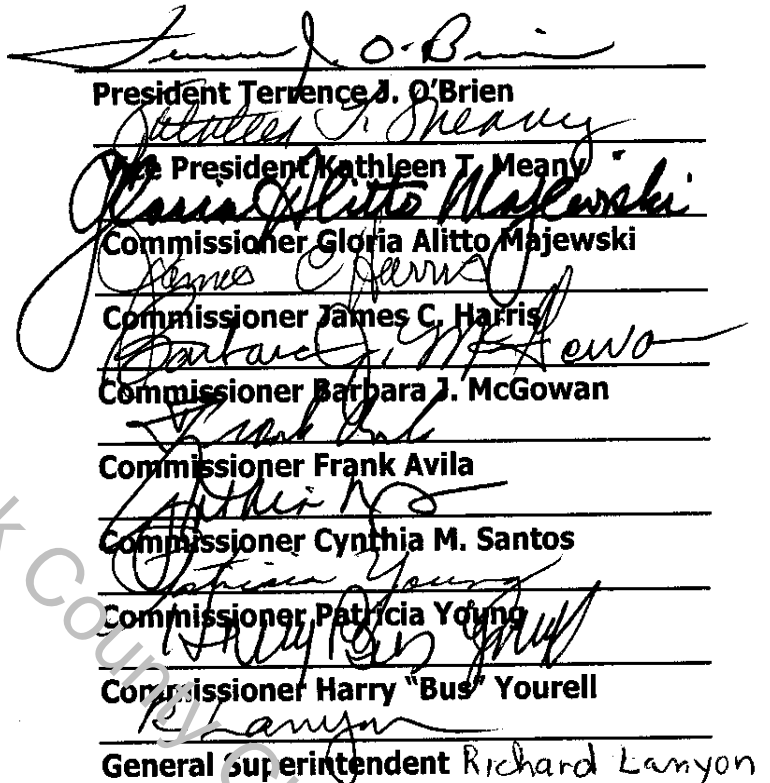 Terrence J. O'Brien
President Terrence J. O'Brien
Kathleen T. Meany
Vice President Kathleen T. Meany
Gloria Alitto Majewski
Commissioner Gloria Alitto Majewski
James C. Harris
Commissioner James C. Harris
Barbara J. McGowan
Commissioner Barbara J. McGowan
Frank Avila
Commissioner Frank Avila
Cynthia M. Santos
Commissioner Cynthia M. Santos
Patricia Young
Commissioner Patricia Young
Harry Bus Yourell
Commissioner Harry "Bus" Yourell
R Lanyon
General Superintendent Richard Lanyon
County